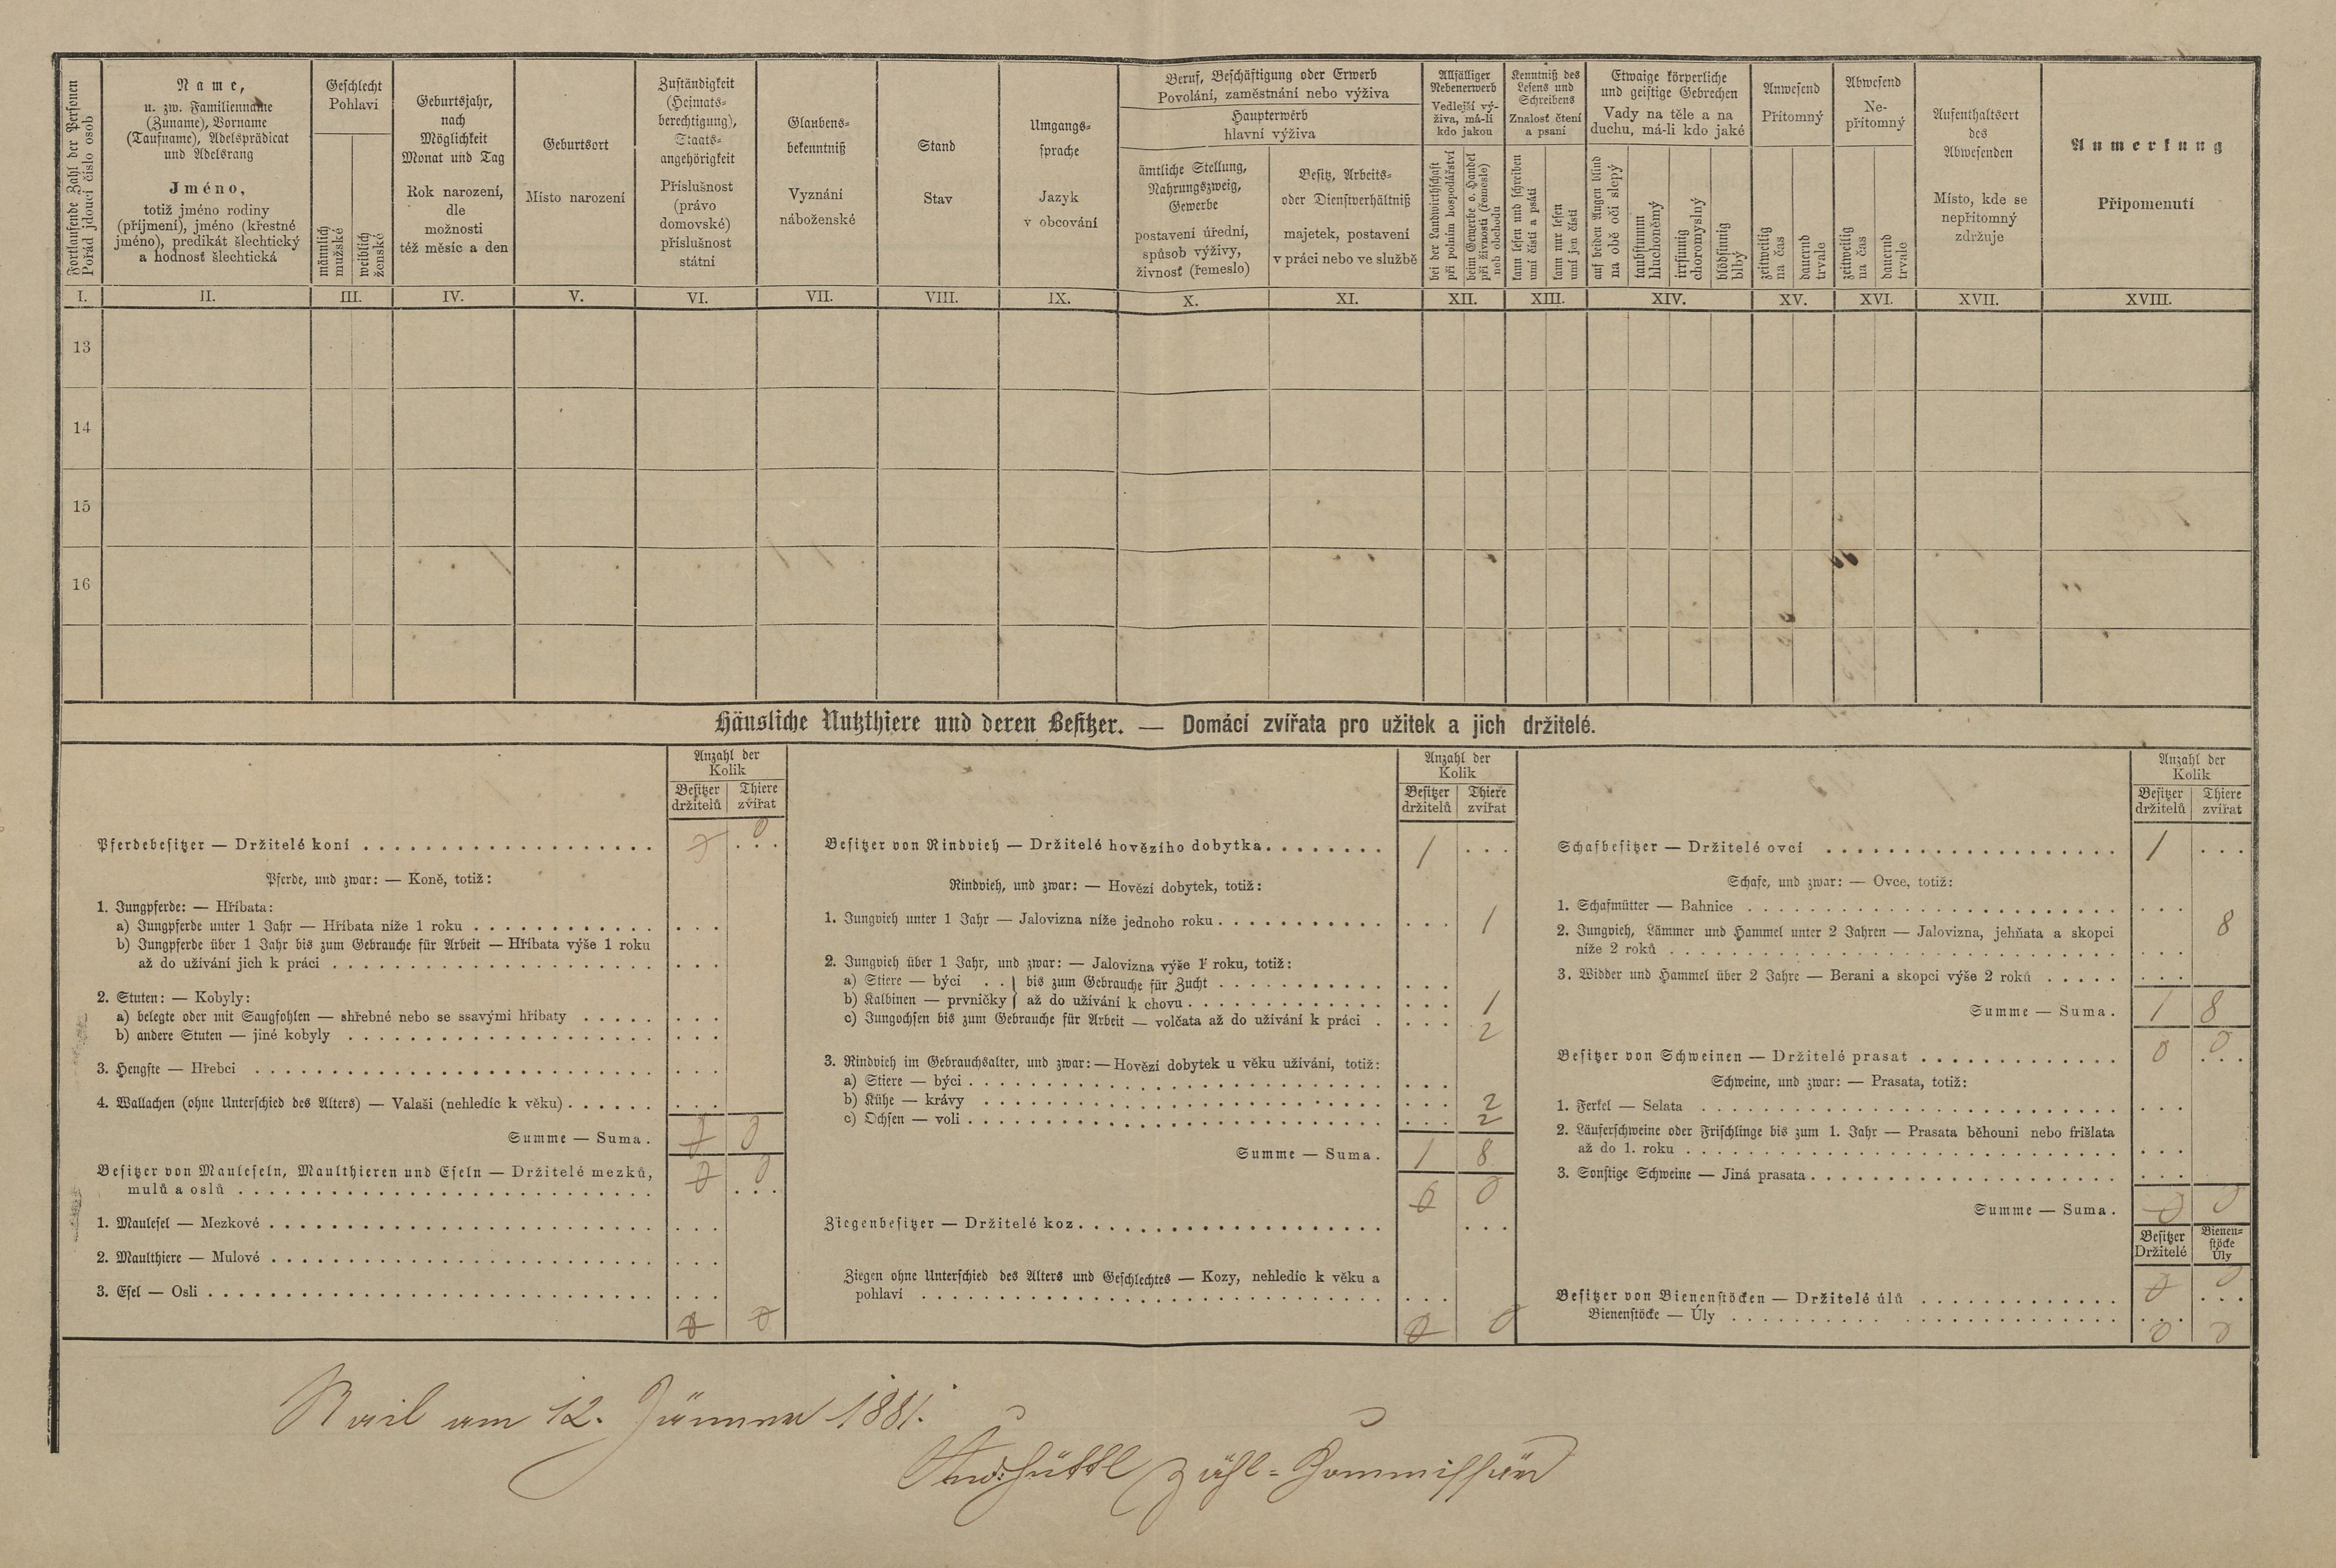 Fortlaufende Zahl der Personen
Pořád jdoucí číslo osob
Name,
u. zw. Familienname
(Zuname), Vorname
(Taufname), Adelsprädicat
und Adelsrang
Jméno,
totiž jméno rodiny
(příjmení), jméno (křestné
jméno), predikát šlechtický
a hodnosť šlechtická
Geschlecht
Pohlaví
männlich
mužské
weiblich
ženské
Geburtsjahr,
nach
Möglichkeit
Monat und Tag
Rok narození,
dle
možnosti
též měsíc a den
Geburtsort
Místo narození
Zuständigkeit
(Heimats-
berechtigung),
Staats-
angehörigkeit
Příslušnost
(právo
domovské)
příslušnost
státní
Glaubens-
bekenntniß
Vyznání
náboženské
Stand
Stav
Umgangs-
sprache
Jazyk
v obcování
Beruf, Beschäftigung oder Erwerb
Povolání, zaměstnání nebo výživa
Haupterwerb
hlavní výživa
ämtliche Stellung,
Nahrungszweig,
Gewerbe
postavení úřední,
spůsob výživy,
živnosť (řemeslo)
Besitz, Arbeits-
oder Dienstverhältniß
majetek, postavení
v práci nebo ve službě
Allfälliger
Nebenerwerb
Vedlejší vý-
živa, má-li
kdo jakou
bei der Landwirthschaft
při polním hospodářství
beim Gewerbe o. Handel
při živnosti (řemeslo)
neb obchodu
Kenntniß des
Lesens und
Schreibens
Znalosť čtení
a psaní
kann lesen und schreiben
umí čísti a psáti
kann nur lesen
umí jen čísti
Etwaige körperliche
und geistige Gebrechen
Vady na těle a na
duchu, má-li kdo jaké
auf beiden Augen blind
na obě oči slepý
taubstumm
hluchoněmý
irrsinnig
choromyslný
blödsinnig
blbý
Anwesend
Přítomný
zeitweilig
na čas
dauernd
trvale
Abwesend
Ne-
přítomný
zeitweilig
na čas
dauernd
trvale
Aufenthaltsort
des
Abwesenden
Místo, kde se
nepřítomný
zdržuje
Anmerkung
Připomenutí
I. II. III. IV. V. VI. VII. VIII. IX. X. XI. XII. XIII. XIV. XV. XVI. XVII. XVIII.
13
14
15
16
Häusliche Nutzthiere und deren Besitzer. — Domácí zvířata pro užitek a jich držitelé.
Anzahl der
Kolik
Besitzer
držitelů
Thiere
zvířat
Pferdebesitzer — Držitelé koní . . . 0 0
Pferde, und zwar: — Koně, totiž:
1. Jungpferde: — Hříbata:
a) Jungpferde unter 1 Jahr — Hříbata níže 1 roku . . .
b) Jungpferde über 1 Jahr bis zum Gebrauche für Arbeit — Hříbata výše 1 roku
až do užívání jich k práci . . .
2. Stuten: — Kobyly:
a) belegte oder mit Saugfohlen — shřebné nebo se ssavými hříbaty . . .
b) andere Stuten — jiné kobyly . . .
3. Hengste — Hřebci . . .
4. Wallachen (ohne Unterschied des Alters) — Valaši (nehledíc k věku) . . .
Summe — Suma. 0 0
Besitzer von Mauleseln, Maulthieren und Eseln — Držitelé mezků,
mulů a oslů . . . 0 0
1. Maulesel — Mezkové . . .
2. Maulthiere — Mulové . . .
3. Esel — Osli . . .
0 0
Anzahl der
Kolik
Besitzer
držitelů
Thiere
zvířat
Besitzer von Rindvieh — Držitelé hovězího dobytka . . . 1
Rindvieh, und zwar: — Hovězí dobytek, totiž:
1. Jungvieh unter 1 Jahr — Jalovizna níže jednoho roku . . . 1
2. Jungvieh über 1 Jahr, und zwar: — Jalovizna výše 1 roku, totiž:
a) Stiere — býci . . } bis zum Gebrauche für Zucht . . .
b) Kalbinen — prvničky } až do užívání k chovu . . . 1
c) Jungochsen bis zum Gebrauche für Arbeit — volčata až do užívání k práci . . . 2
3. Rindvieh im Gebrauchsalter, und zwar: — Hovězí dobytek u věku užívání, totiž:
a) Stiere — býci . . .
b) Kühe — krávy . . . 2
c) Ochsen — voli . . . 2
Summe — Suma. 1 8
0 0
Ziegenbesitzer — Držitelé koz . . .
Ziegen ohne Unterschied des Alters und Geschlechtes — Kozy, nehledíc k věku a
pohlaví . . .
0 0
Anzahl der
Kolik
Besitzer
držitelů
Thiere
zvířat
Schafbesitzer — Držitelé ovcí . . . 1
Schafe, und zwar: — Ovce, totiž:
1. Schafmütter — Bahnice . . .
2. Jungvieh, Lämmer und Hammel unter 2 Jahren — Jalovizna, jehňata a skopci 8
níže 2 roků . . .
3. Widder und Hammel über 2 Jahre — Berani a skopci výše 2 roků . . .
Summe — Suma. 1 8
Besitzer von Schweinen — Držitelé prasat . . . 0 0
Schweine, und zwar: — Prasata, totiž:
1. Ferkel — Selata . . .
2. Läuferschweine oder Frischlinge bis zum 1. Jahr — Prasata běhouni nebo frišlata
až do 1. roku . . .
3. Sonstige Schweine — Jiná prasata . . .
Summe — Suma. 0 0
Besitzer
Držitelé
Bienen-
stöcke
Úly
Besitzer von Bienenstöcken — Držitelé úlů . . . 0 0
Bienenstöcke — Úly . . .
0 0
am 12. Jänner 1881.
And: Hüttl Zähl-Commissär